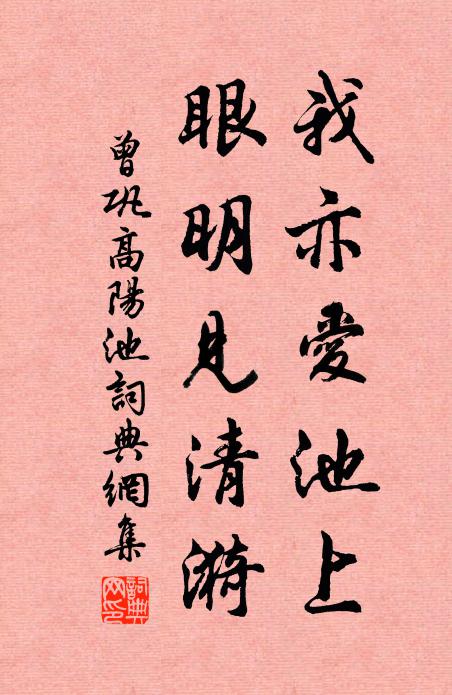 我亦愛池上
眼明見清漪
曾鞏高陽池詞典網集
詞典網印